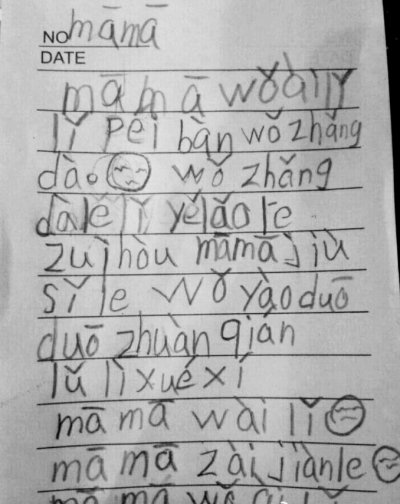 NO māmā
DATE
mā mā wǒ ài
lǐ péi bàn wǒ zhǎng
dào wǒ zhǎng
dàlě lǐ yě lǎo le
zuì hòu māmā jiù
sǐ le wǒ yào duō
duō zhuàn qián
lǔ lì xué xí
mā mā wài lǐ
mā mā zài jiàn le